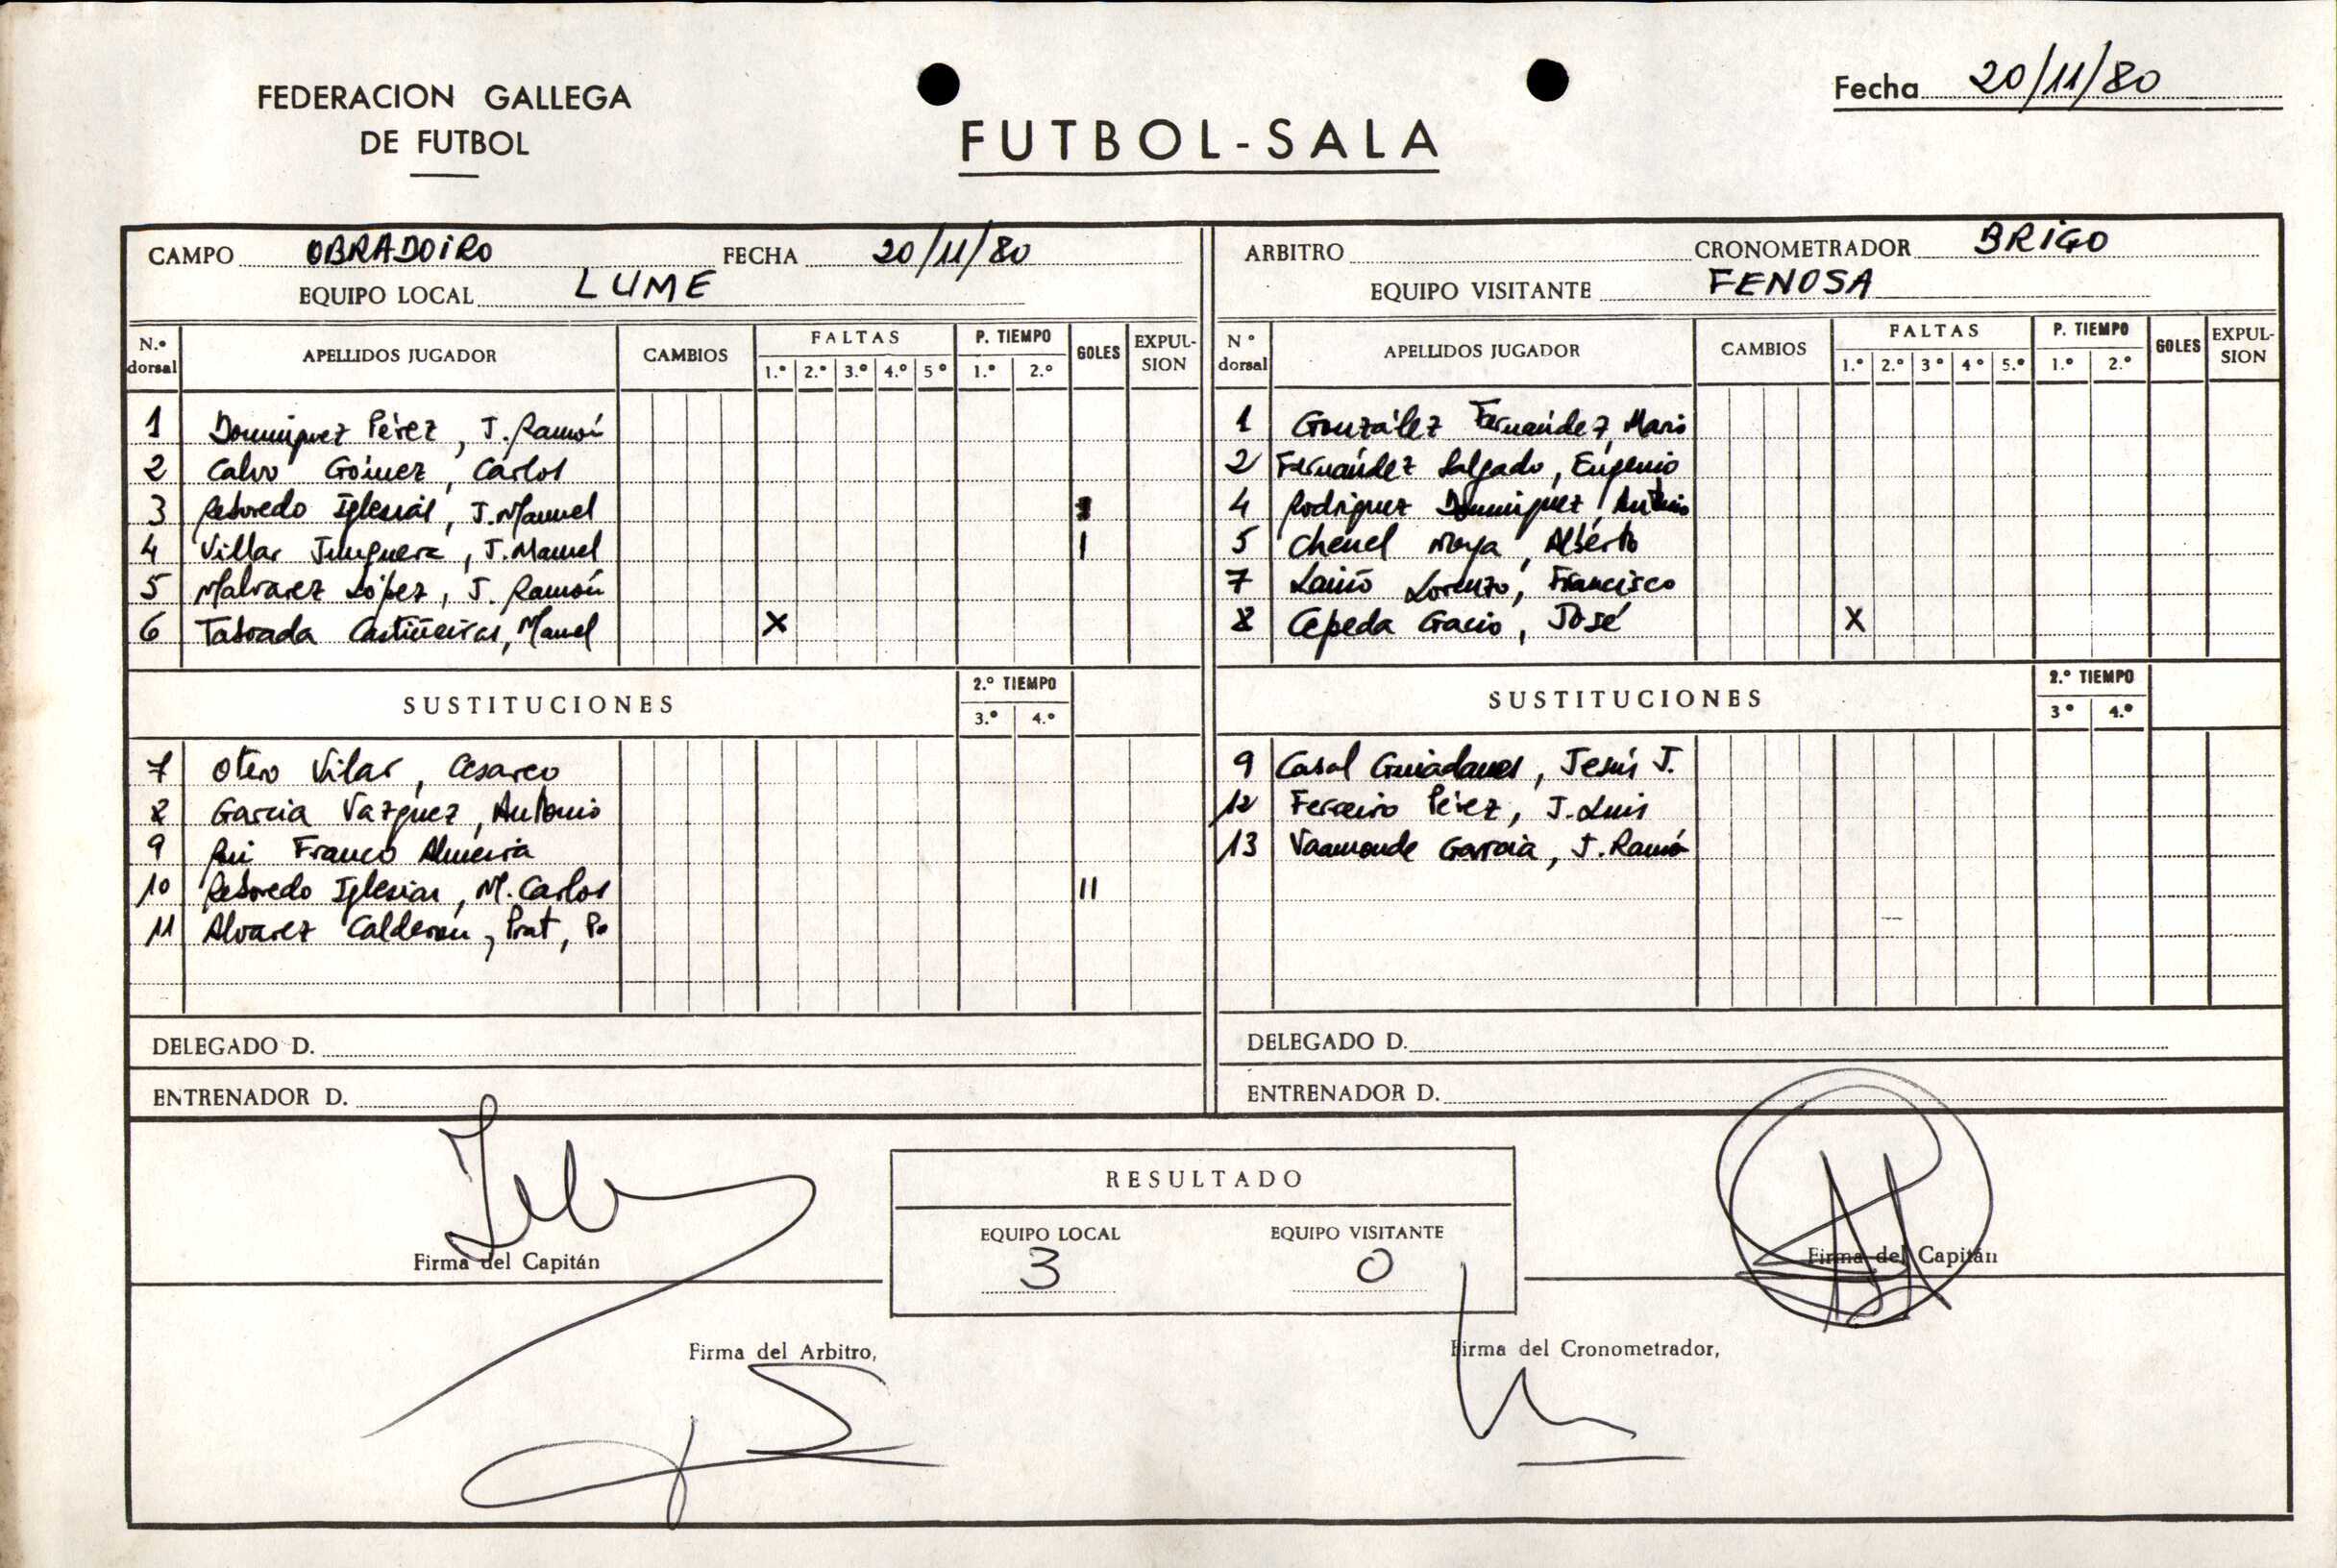 FEDERACION GALLEGA
DE FUTBOL
FUTBOL-SALA
Fecha 20/11/80
CAMPO OBRADOIRO FECHA 20/11/80
EQUIPO LOCAL LUME
N.º dorsal APELLIDOS JUGADOR CAMBIOS FALTAS 1.º 2.º 3.º 4.º 5º P. TIEMPO 1.º 2.º GOLES EXPUL-SION
1 Dominguez Pérez, J. Ramón
2 Calvo Gómez, Carlos
3 Reboredo Iglesias, J. Manuel
4 Villar Junquera, J. Manuel I
5 Malvarez López, J. Ramón
6 Taboada Castiñeiras, Manuel X
SUSTITUCIONES 2.º TIEMPO 3.º 4.º
7 Otero Vilar, Cesareo
8 Garcia Vazquez, Antonio
9 Rui Franco Almeira
10 Reboredo Iglesias, M. Carlos II
11 Alvarez Calderón, Prat, Po
DELEGADO D.
ENTRENADOR D.
ARBITRO CRONOMETRADOR BRIGO
EQUIPO VISITANTE FENOSA
Nº dorsal APELLIDOS JUGADOR CAMBIOS FALTAS 1.º 2.º 3º 4º 5.º P. TIEMPO 1.º 2.º GOLES EXPUL-SION
1 González Fernández, Mario
2 Fernández Salgado, Eugenio
4 Rodriguez Dominguez, Antonio
5 Chenel Moya, Alberto
7 Laiño Lorenzo, Francisco
8 Cepeda Gacio, José X
SUSTITUCIONES 2.º TIEMPO 3º 4.º
9 Casal Guiadanes, Jesús J.
12 Ferreiro Pérez, J. Luis
13 Vaamonde Garcia, J. Ramón
DELEGADO D.
ENTRENADOR D.
RESULTADO
EQUIPO LOCAL EQUIPO VISITANTE
3 0
Firma del Capitán
Firma del Capitán
Firma del Arbitro,
Firma del Cronometrador,